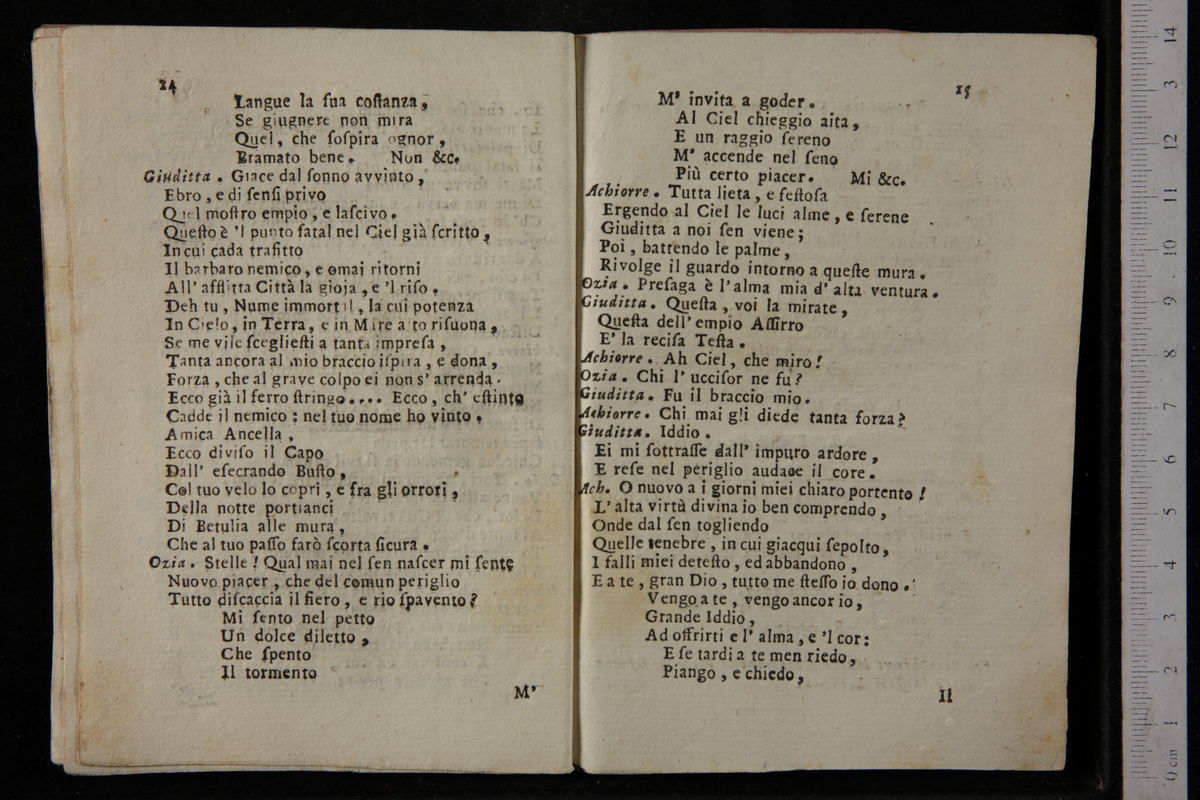 14
Langue la ſua coſtanza,
Se giugnere non mira
Quel, che ſoſpira ognor,
Bramato bene. Non &c.
Giuditta. Giace dal ſonno avvinto,
Ebro, e di ſenſi privo
Quel moſtro empio, e laſcivo.
Queſto è 'l punto fatal nel Ciel già ſcritto,
In cui cada trafitto
Il barbaro nemico, e omai ritorni
All' afflitta Città la gioja, e 'l riſo.
Deh tu, Nume immortal, la cui potenza
In Cielo, in Terra, e in Mare alto riſuona,
Se me vile ſceglieſti a tanta impreſa,
Tanta ancora al mio braccio iſpira, e dona,
Forza, che al grave colpo ei non s' arrenda.
Ecco già il ferro ſtringo.... Ecco, ch' eſtinto
Cadde il nemico; nel tuo nome ho vinto.
Amica Ancella,
Ecco diviſo il Capo
Dall' eſecrando Buſto,
Col tuo velo lo copri, e fra gli orrori,
Della notte portianci
Di Betulia alle mura,
Che al tuo paſſo farò ſcorta ſicura.
Ozia. Stelle! Qual mai nel ſen naſcer mi ſento
Nuovo piacer, che del comun periglio
Tutto diſcaccia il fiero, e rio ſpavento?
Mi ſento nel petto
Un dolce diletto,
Che ſpento
Il tormento
M'
15
M' invita a goder.
Al Ciel chieggio aita,
E un raggio ſereno
M' accende nel ſeno
Più certo piacer. Mi &c.
Achiorre. Tutta lieta, e feſtoſa
Ergendo al Ciel le luci alme, e ſerene
Giuditta a noi ſen viene;
Poi, battendo le palme,
Rivolge il guardo intorno a queſte mura.
Ozia. Preſaga è l'alma mia d' alta ventura.
Giuditta. Queſta, voi la mirate,
Queſta dell' empio Aſſirro
E' la reciſa Teſta.
Achiorre. Ah Ciel, che miro!
Ozia. Chi l' ucciſor ne fu?
Giuditta. Fu il braccio mio.
Achiorre. Chi mai gli diede tanta forza?
Giuditta. Iddio.
Ei mi ſottraſſe dall' impuro ardore,
E reſe nel periglio audace il core.
Ach. O nuovo a i giorni miei chiaro portento!
L' alta virtù divina io ben comprendo,
Onde dal ſen togliendo
Quelle tenebre, in cui giacqui ſepolto,
I falli miei deteſto, ed abbandono,
E a te, gran Dio, tutto me ſteſſo io dono.
Vengo a te, vengo ancor io,
Grande Iddio,
Ad offrirti e l' alma, e 'l cor:
E ſe tardi a te men riedo,
Piango, e chiedo,
Il